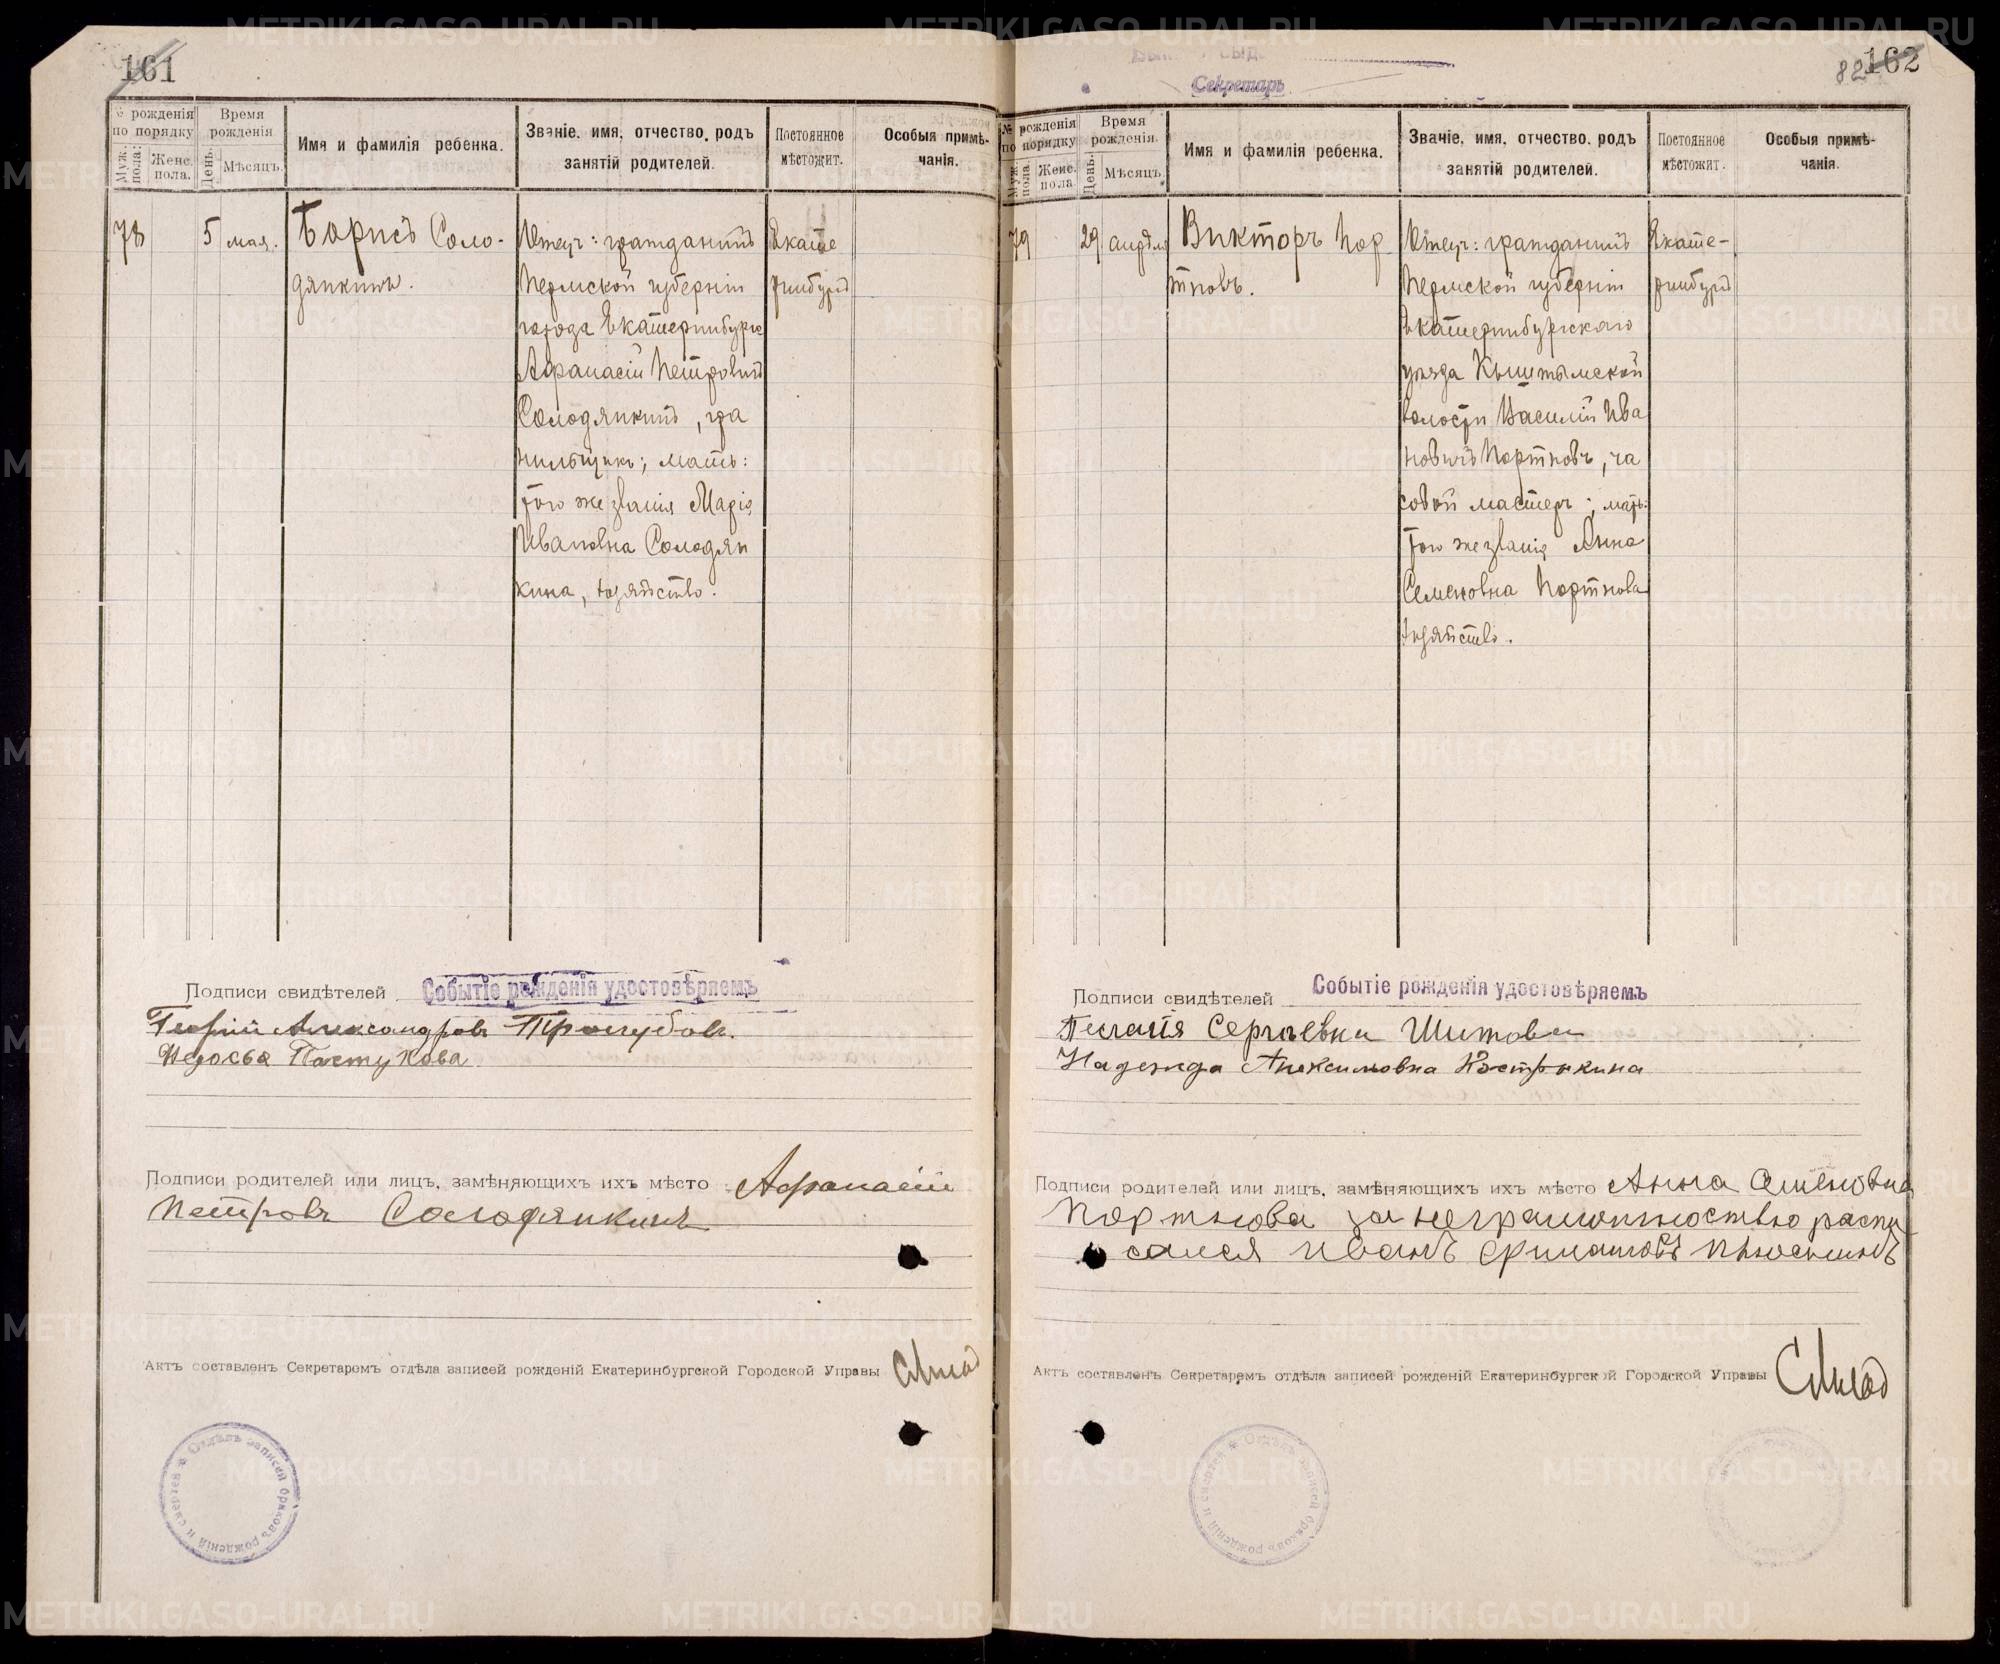 161
№ рожденія по порядку
Муж. пола.
Женс. пола.
Время рожденія
День.
Мѣсяцъ.
Имя и фамилія ребенка.
Званіе, имя, отчество, родъ
занятій родителей.
Постоянное
мѣстожит.
Особыя примѣ-
чанія.
78
5 мая.
Борисъ Соло-
дянкинъ.
Отецъ: гражданинъ
Пермской губерніи
города Екатеринбурга
Афанасій Петровичъ
Солодянкинъ, гра
нильщикъ; мать:
того же званія Марія
Ивановна Солодян
кина, хозяйство.
Екате
ринбургъ
Подписи свидѣтелей
Событіе рожденія удостовѣряемъ
Георгій Александровъ
Федосья Пастухова
Подписи родителей или лицъ, замѣняющихъ ихъ мѣсто Афанасій
Петровъ Солодянкинъ
Актъ составленъ Секретаремъ отдѣла записей рожденій Екатеринбургской Городской Управы
Отдѣлъ записей браковъ рожденій и смертей
Секретарь
82
162
№ рожденія по порядку
Муж. пола.
Женс. пола
Время рожденія.
День.
Мѣсяцъ.
Имя и фамилія ребенка.
Званіе, имя, отчество, родъ
занятій родителей.
Постоянное
мѣстожит.
Особыя примѣ-
чанія.
79
29 апрѣля
Викторъ Пор
тновъ.
Отецъ: гражданинъ
Пермской губерніи
Екатеринбургскаго
уѣзда Кыштымской
волости Василій Ива
новичъ Портновъ, ча
совой мастеръ; мать:
того же званія Анна
Семеновна Портнова
хозяйство.
Екате-
ринбургъ
Подписи свидѣтелей
Событіе рожденія удостовѣряемъ
Пелагія Сергѣевна Шитова
Надежда Максимовна Кострыкина
Подписи родителей или лицъ, замѣняющихъ ихъ мѣсто Анна Семеновна
Портнова за неграмотностью распи
сался Иванъ
Актъ составленъ Секретаремъ отдѣла записей рожденій Екатеринбургской Городской Управы
Отдѣлъ записей браковъ рожденій и смертей
METRIKI.GASO-URAL.RU